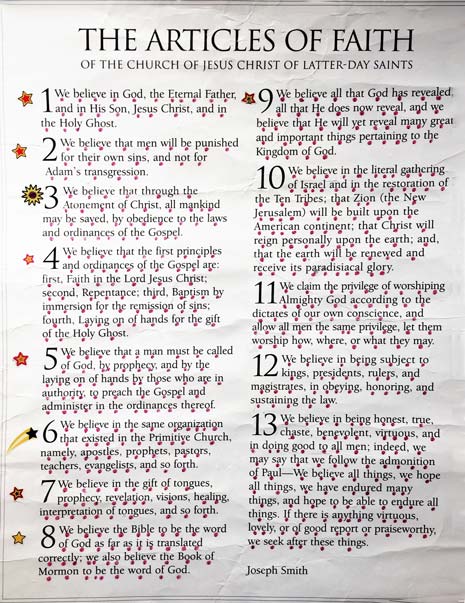 THE ARTICLES OF FAITH
OF THE CHURCH OF JESUS CHRIST OF LATTER-DAY SAINTS
1 We believe in God, the Eternal Father,
and in His Son, Jesus Christ, and in
the Holy Ghost.
2 We believe that men will be punished
for their own sins, and not for
Adam's transgression.
3 We believe that through the
Atonement of Christ, all mankind
may be saved, by obedience to the laws
and ordinances of the Gospel.
4 We believe that the first principles
and ordinances of the Gospel are:
first, Faith in the Lord Jesus Christ;
second, Repentance; third, Baptism by
immersion for the remission of sins;
fourth, Laying on of hands for the gift
of the Holy Ghost.
5 We believe that a man must be called
of God, by prophecy, and by the
laying on of hands by those who are in
authority, to preach the Gospel and
administer in the ordinances thereof.
6 We believe in the same organization
that existed in the Primitive Church,
namely, apostles, prophets, pastors,
teachers, evangelists, and so forth.
7 We believe in the gift of tongues,
prophecy, revelation, visions, healing,
interpretation of tongues, and so forth.
8 We believe the Bible to be the word
of God as far as it is translated
correctly; we also believe the Book of
Mormon to be the word of God.
9 We believe all that God has revealed,
all that He does now reveal, and we
believe that He will yet reveal many great
and important things pertaining to the
Kingdom of God.
10 We believe in the literal gathering
of Israel and in the restoration of
the Ten Tribes; that Zion (the New
Jerusalem) will be built upon the
American continent; that Christ will
reign personally upon the earth; and,
that the earth will be renewed and
receive its paradisiacal glory.
11 We claim the privilege of worshiping
Almighty God according to the
dictates of our own conscience, and
allow all men the same privilege, let them
worship how, where, or what they may.
12 We believe in being subject to
kings, presidents, rulers, and
magistrates, in obeying, honoring, and
sustaining the law.
13 We believe in being honest, true,
chaste, benevolent, virtuous, and
in doing good to all men; indeed, we
may say that we follow the admonition
of Paul—We believe all things, we hope
all things, we have endured many
things, and hope to be able to endure all
things. If there is anything virtuous,
lovely, or of good report or praiseworthy,
we seek after these things.
Joseph Smith